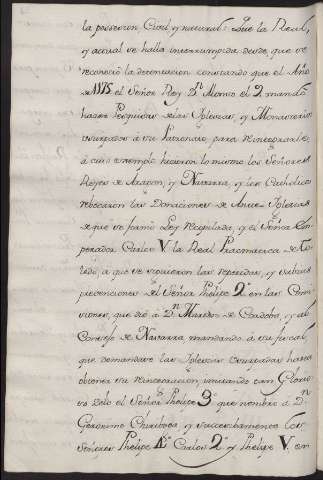 la posesion Civil y natural: Que la Real,
y actual se halla interrumpida desde que se
reconoció la detentacion constando que el Año
de 1175 el Señor Rey Dn Alonso el 2 mandó
hacer Pesquisas de las Iglesias, y Monasterios
usurpados á su Patronato, para reintegrarle,
á cuio exemplo hicieron lo mismo los Señores
Reyes de Aragon, y Navarra, y los Catholicos
rebocaron las Donaciones de Iglesias
de que se formó Ley Recopilada, y el Señor Em-
perador Carlos V. la Real Pracmatica de To-
ledo á que se siguieron las repetidas, y sabias
prevenciones del Señor Phelipe 2º en las Comi-
siones, que dió á Dn Martin de Cordoba, y al
Consejo de Navarra mandando á su fiscal
que demandase las Iglesias usurpadas hasta
obtener su reintegracion, imitando tan Glorio-
so Zelo el Señor Phelipe 3º que nombró á Dn
Geronimo Chiriboga y succesibamente los
Señores Phelipe 4º Carlos 2º y Phelipe V. en